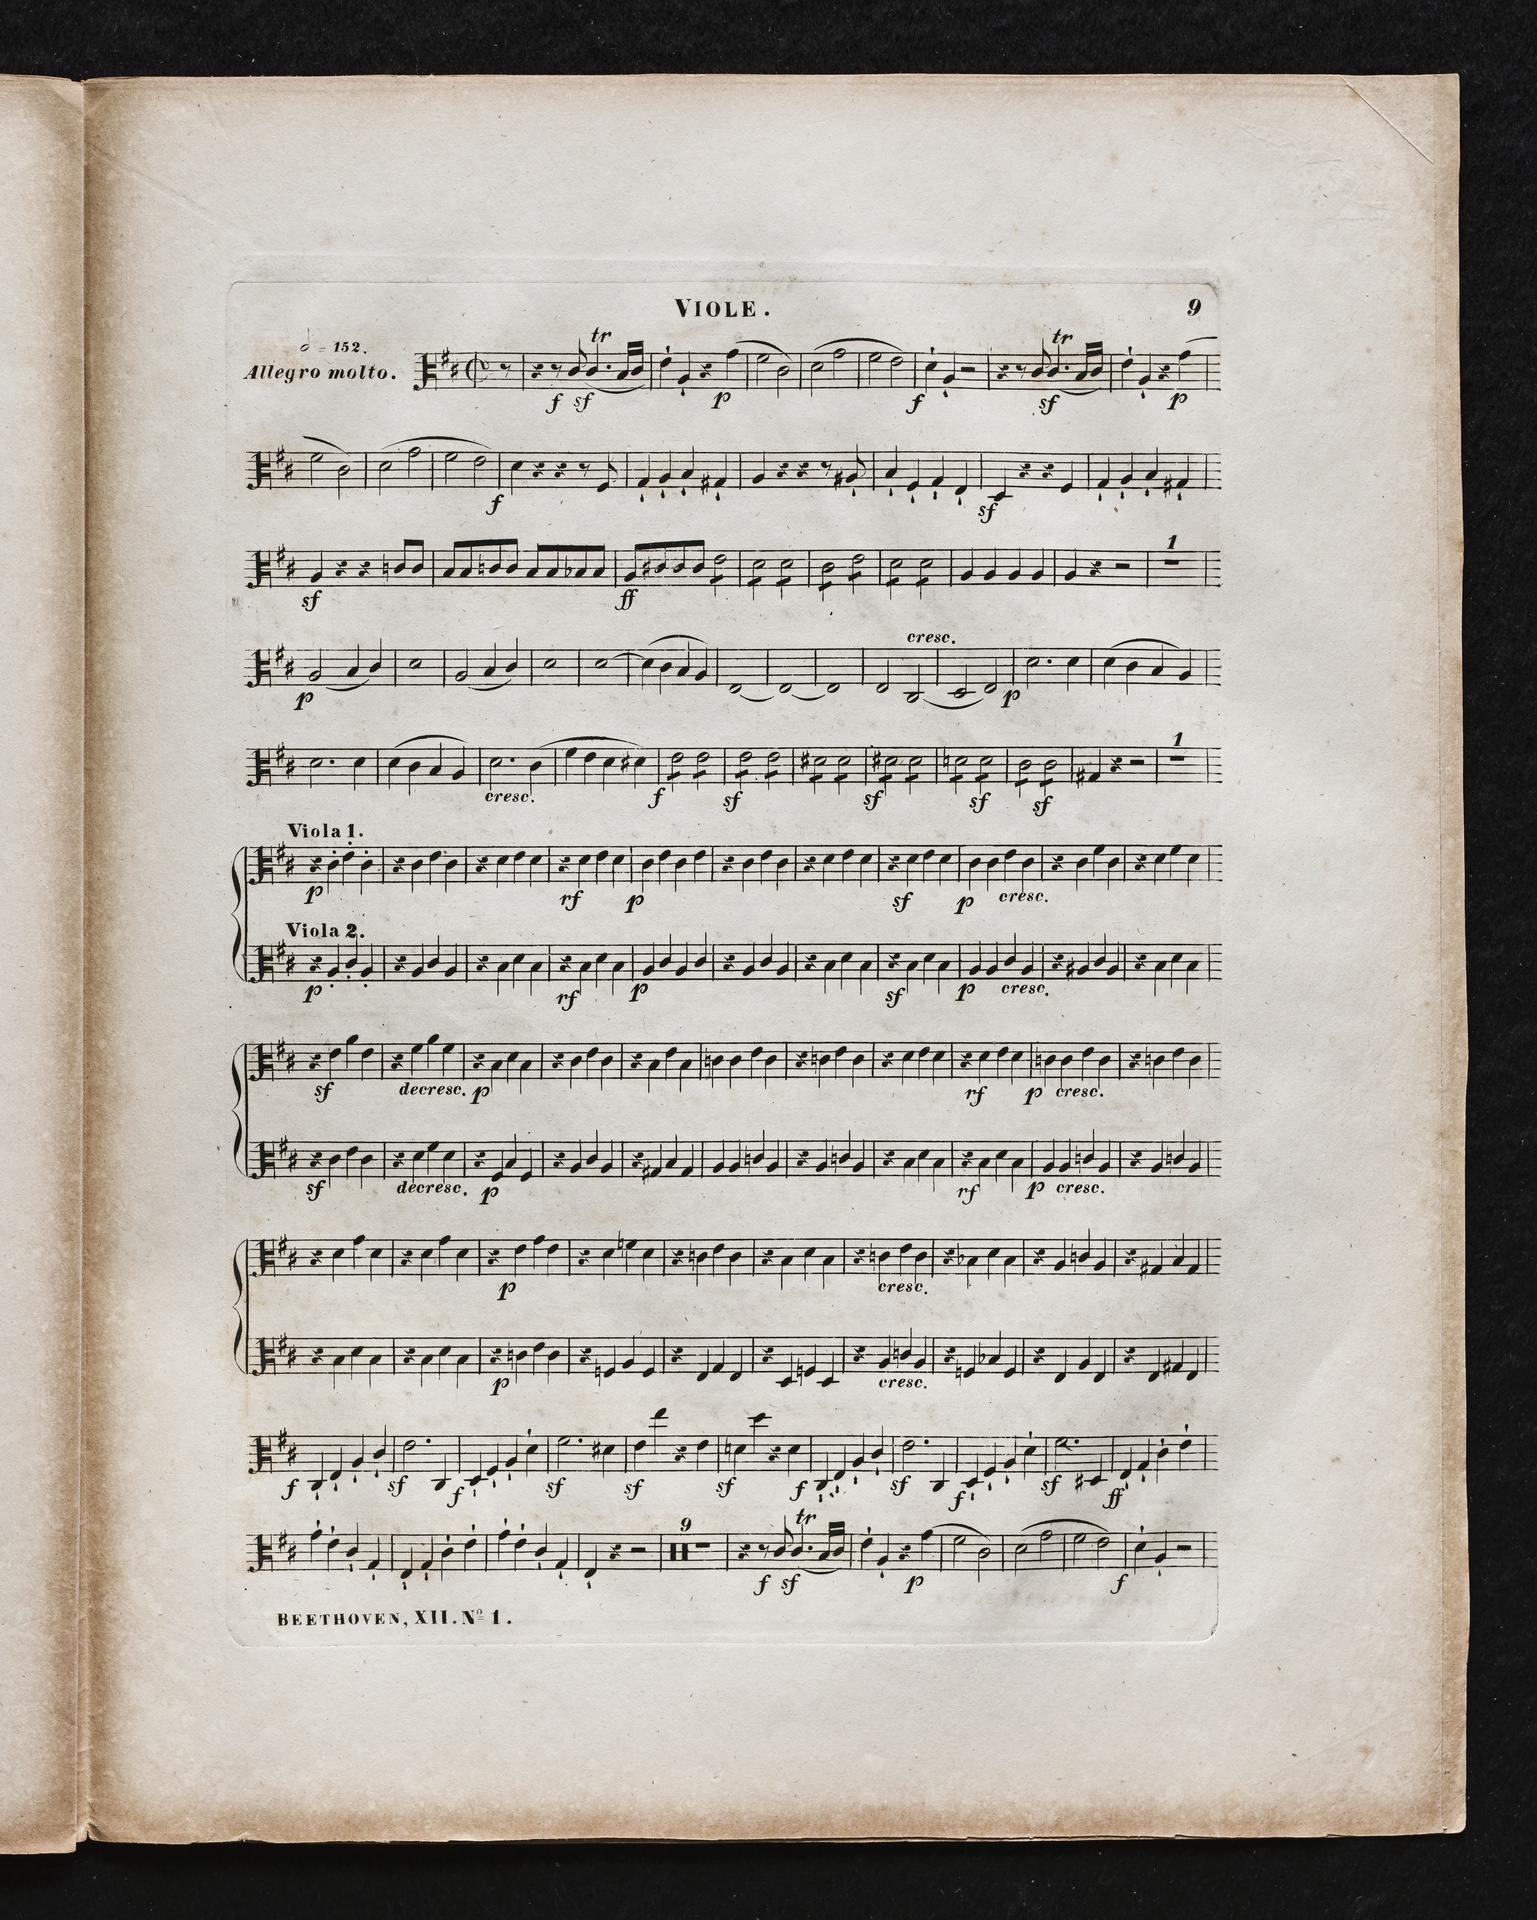 VIOLE.
9
𝅗𝅥 = 152.
Allegro molto.
tr tr
f sf p f sf p
f sf
1
sf ff
cresc.
p p
1
cresc. f sf sf sf sf
Viola 1.
p rf p sf p cresc.
Viola 2.
p rf p sf p cresc.
sf decresc. p rf p cresc.
sf decresc. p rf p cresc.
p cresc.
p cresc.
f sf f sf sf sf f sf f sf ff
9 tr
f sf p f
BEETHOVEN, XII. Nº 1.